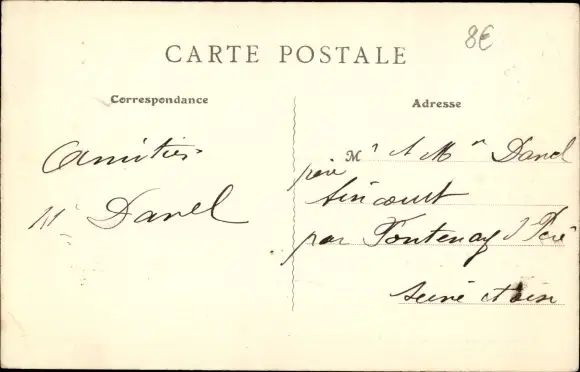 8€
CARTE POSTALE
Correspondance
Amitiés
Mr Danel
Adresse
Mr & Mme Danel
père
par Fontenay St Père
Seine et Oise